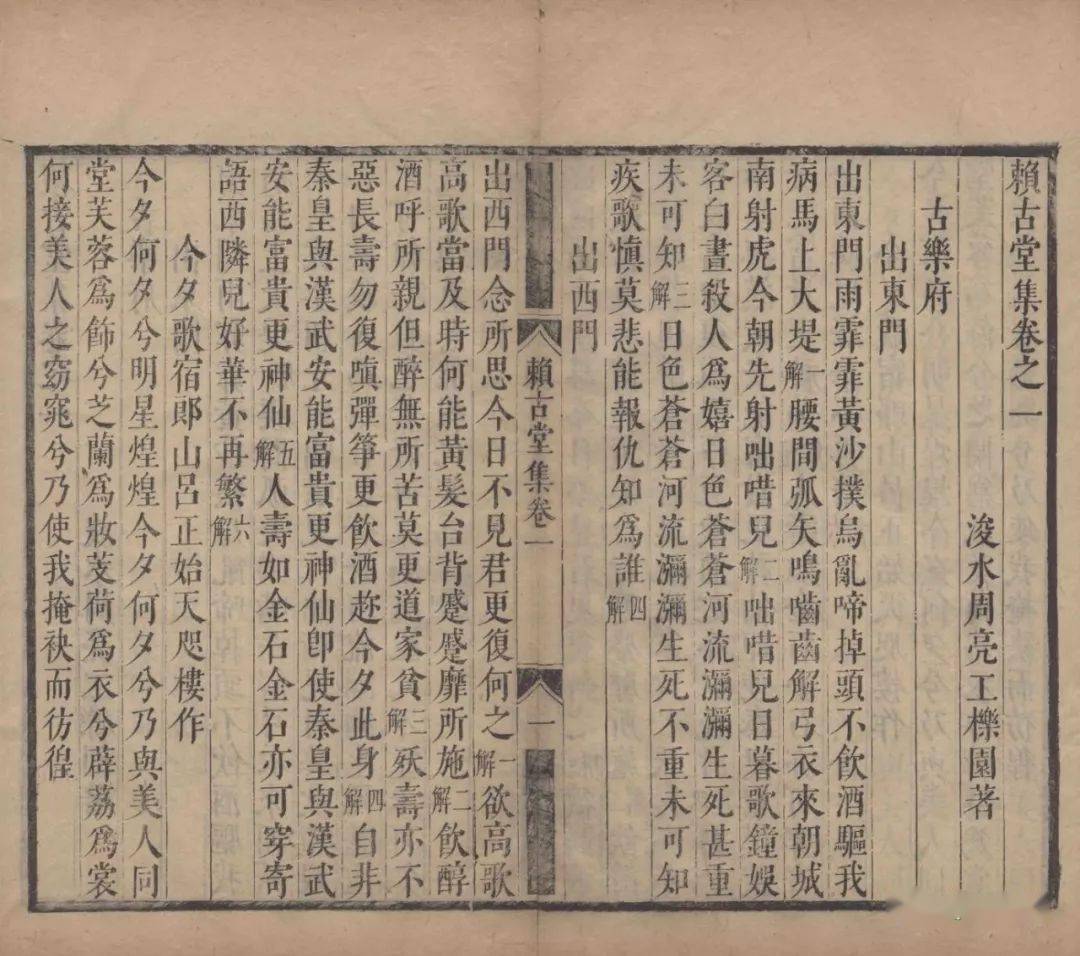 賴古堂集卷之一
浚水周亮工櫟園著
古樂府
出東門
出東門雨霏霏黃沙撲烏亂啼掉頭不飲酒驅我
病馬上大堤一解腰間弧矢鳴嚙齒解弓衣來朝城
南射虎今朝先射咄唶兒二解咄唶兒日暮歌鐘娛
客白晝殺人為嬉日色蒼蒼河流瀰瀰生死甚重
未可知三解日色蒼蒼河流瀰瀰生死不重未可知
疾歌慎莫悲能報仇知為誰四解
出西門
賴古堂集卷一
一
出西門念所思今日不見君更復何之一解欲高歌
高歌當及時何能黃髮台背蹙蹙靡所施二解飲醇
酒呼所親但醉無所苦莫更道家貧三解殀壽亦不
惡長壽勿復嗔彈箏更飲酒趂今夕此身四解自非
秦皇與漢武安能富貴更神仙卽使秦皇與漢武
安能富貴更神仙五解人壽如金石金石亦可穿寄
語西隣兒好華不再繁六解
今夕歌宿郎山呂正始天咫樓作
今夕何夕兮明星煌煌今夕何夕兮乃與美人同
堂芙蓉為飾兮芝蘭為妝芰荷為衣兮薜荔為裳
何接美人之窈窕兮乃使我掩袂而彷徨